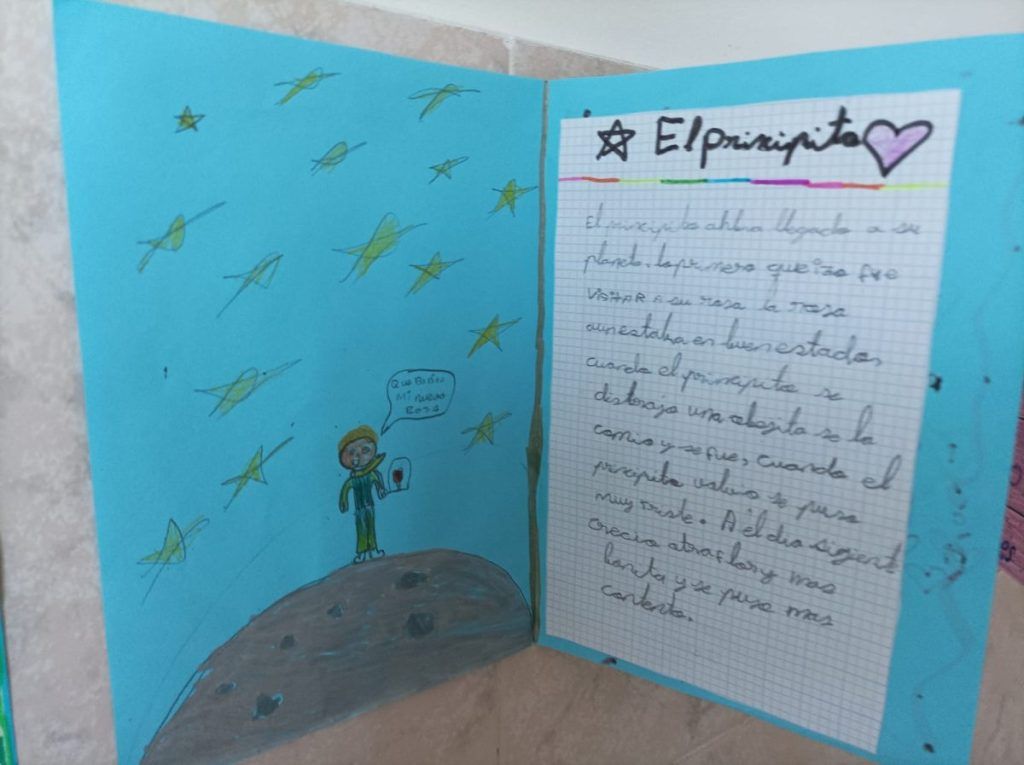 QUE BIEN
MI NUEVA
ROSA
El principito
El principito ahbia llegado a su
planeta, lo primero que izo fue
VISITAR A su rosa la rosa
aun estaba en buen estado,
cuando el principito se
distrajo una obegita se la
comio y se fue, cuando el
principito volvio se puso
muy triste. A el dia sigient
crecio otra flor y mas
bonita y se puso mas
contento.